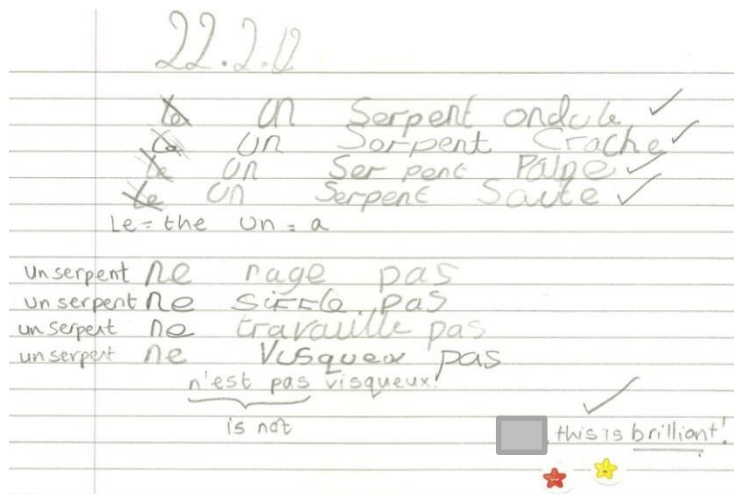 22.2.12
Le un Serpent ondule ✓
Le un Sorpent Crache ✓
Le un Ser pent Palpe ✓
Le un Serpent Saute ✓
Le = the un = a
un serpent ne nage pas
un serpent ne siffle pas
un serpent ne travaille pas
un serpent ne Visqueux pas
n'est pas visqueux!
is not
this is brilliant!